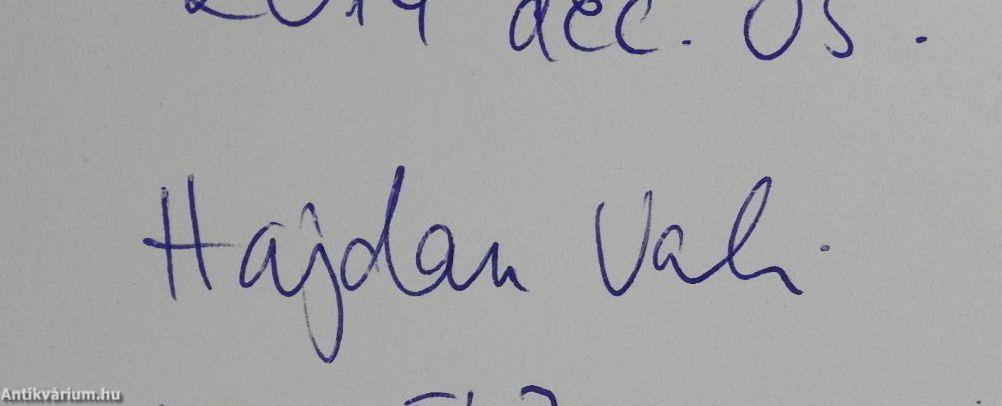 2014 dec. 05.
Hajdan Vali
Antikvárium.hu